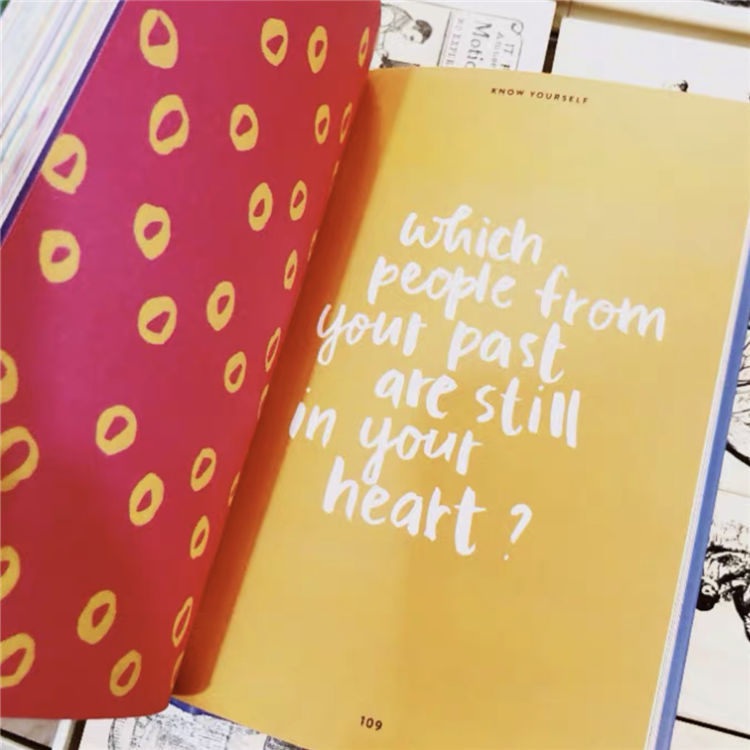 KNOW YOURSELF
which
people from
your past
are still
in your
heart ?
109